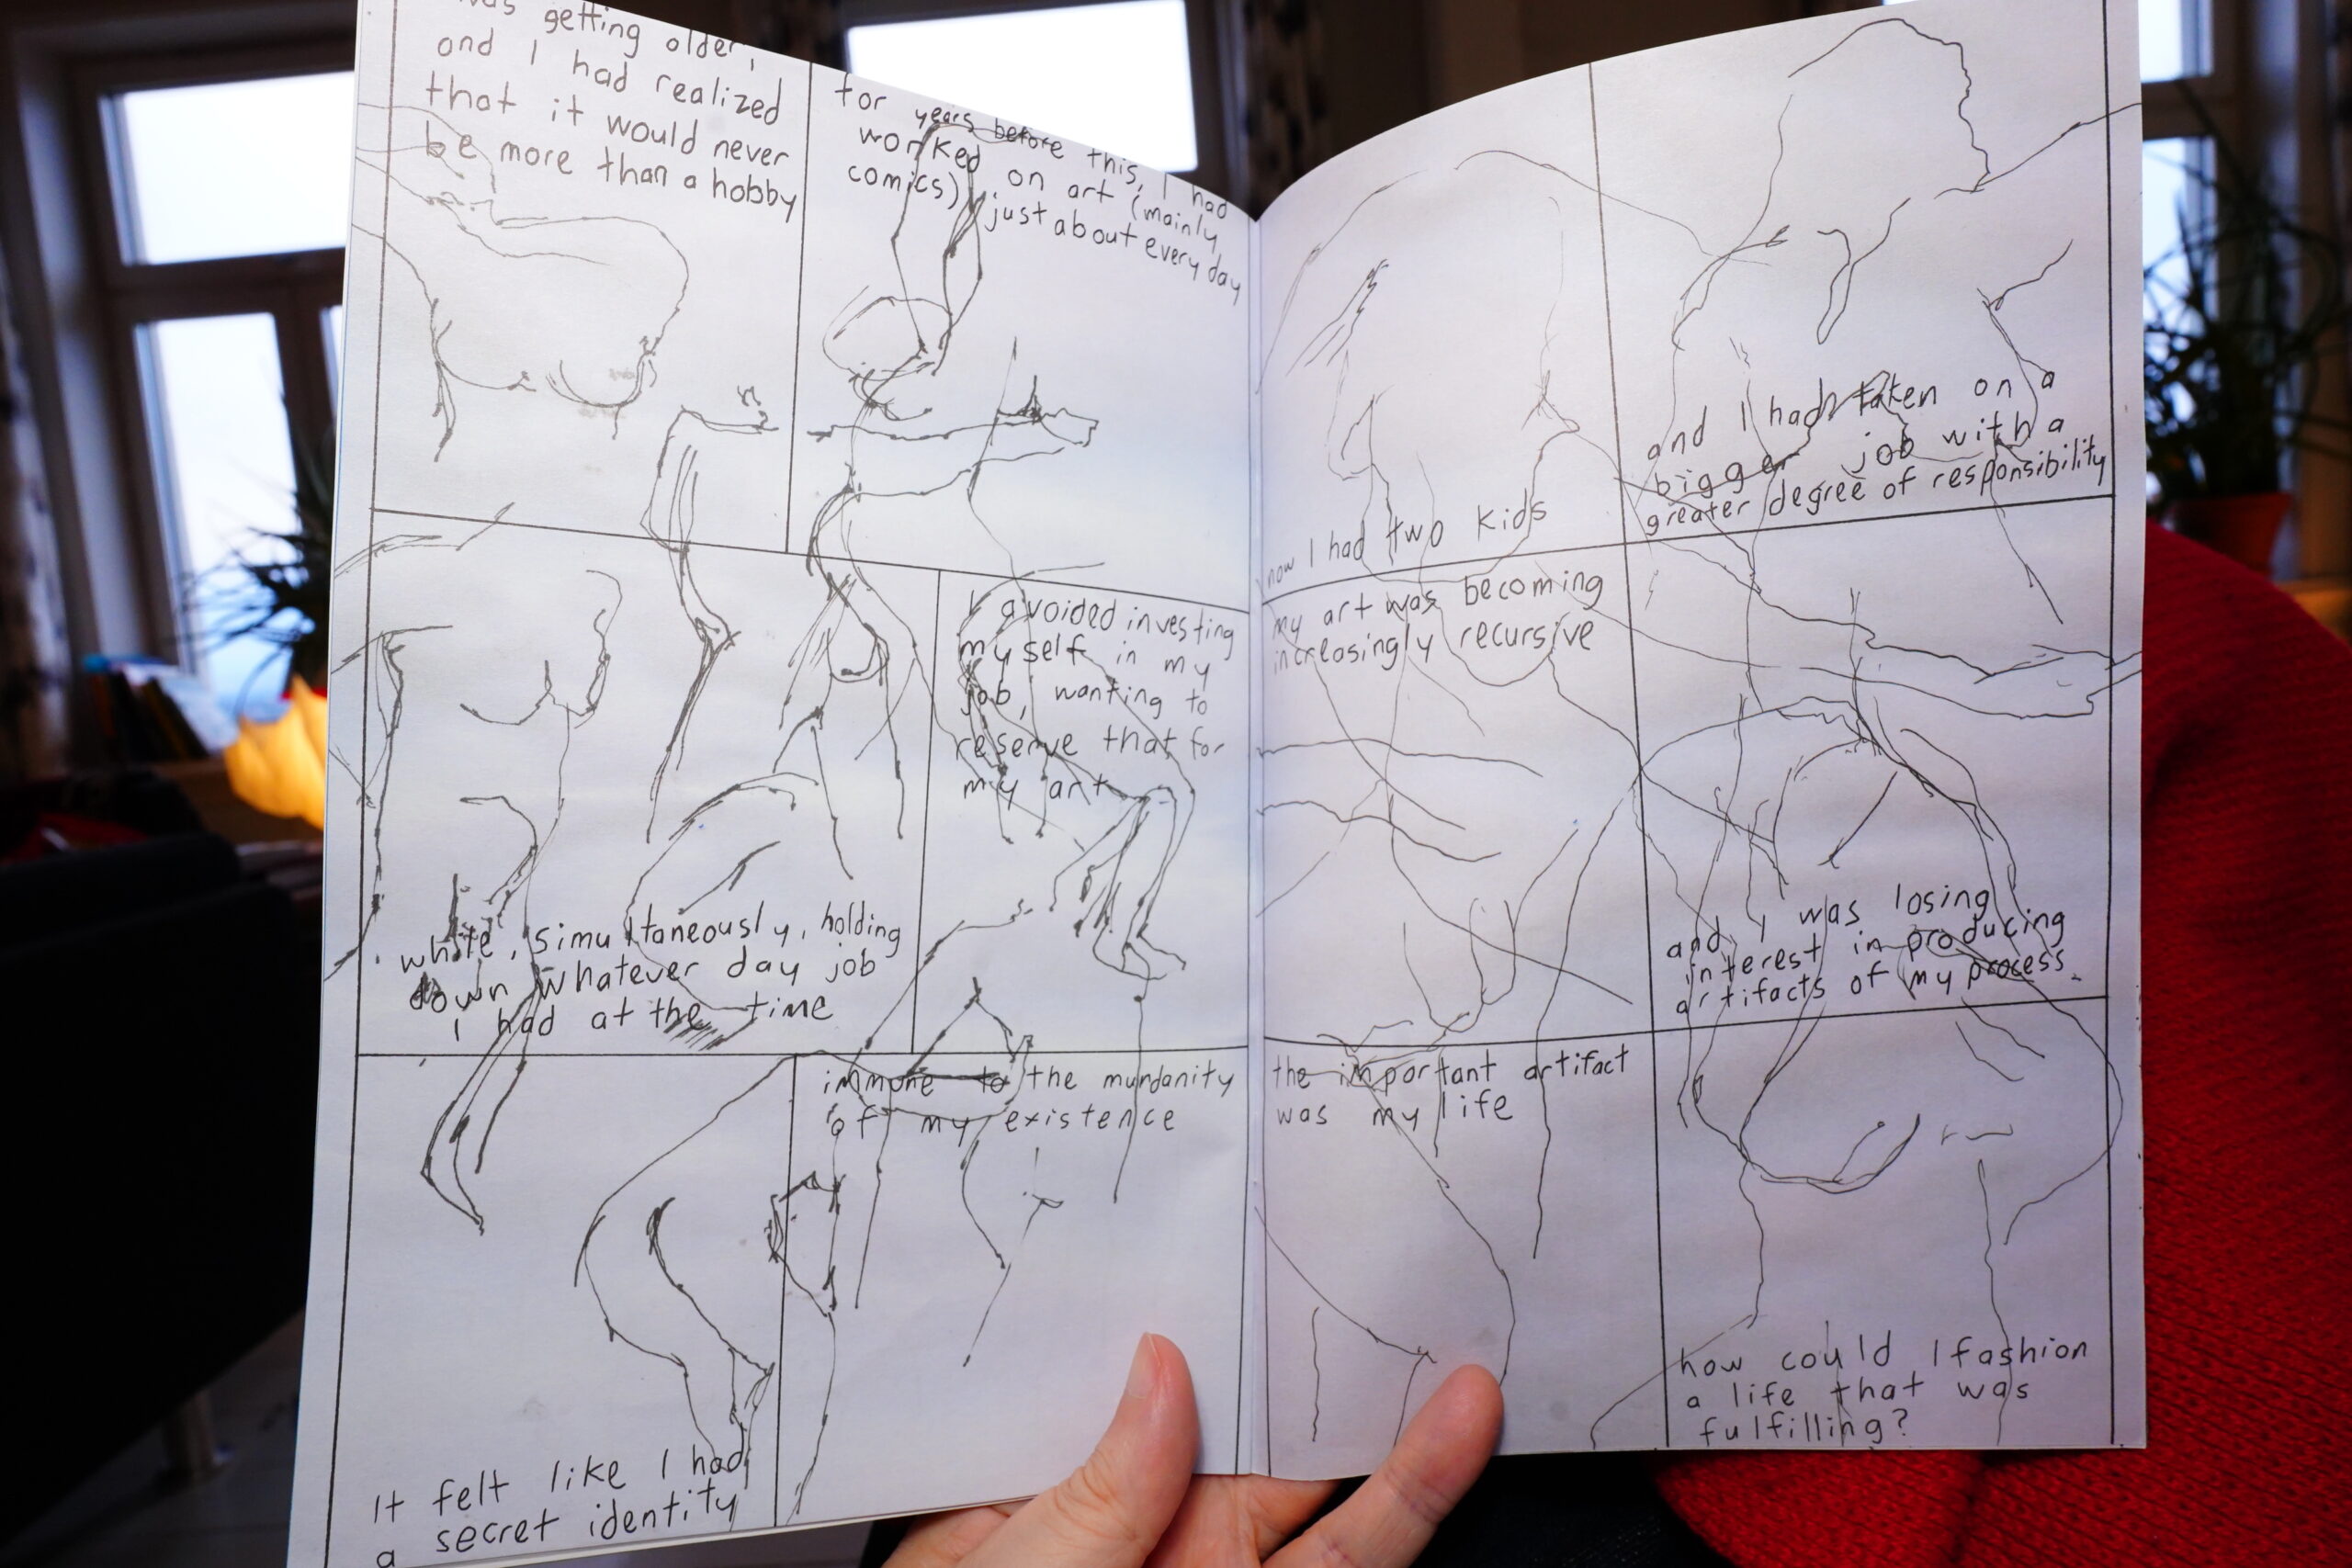 was getting older,
and I had realized
that it would never
be more than a hobby
for years before this, I had
worked on art (mainly
comics) just about every day
while, simultaneously, holding
down whatever day job
I had at the time
I avoided investing
myself in my
job, wanting to
reserve that for
my art
It felt like I had
a secret identity
immune to the mundanity
of my existence
now I had two kids
and I had taken on a
bigger job with a
greater degree of responsibility
my art was becoming
increasingly recursive
and I was losing
interest in producing
artifacts of my process
the important artifact
was my life
how could I fashion
a life that was
fulfilling?